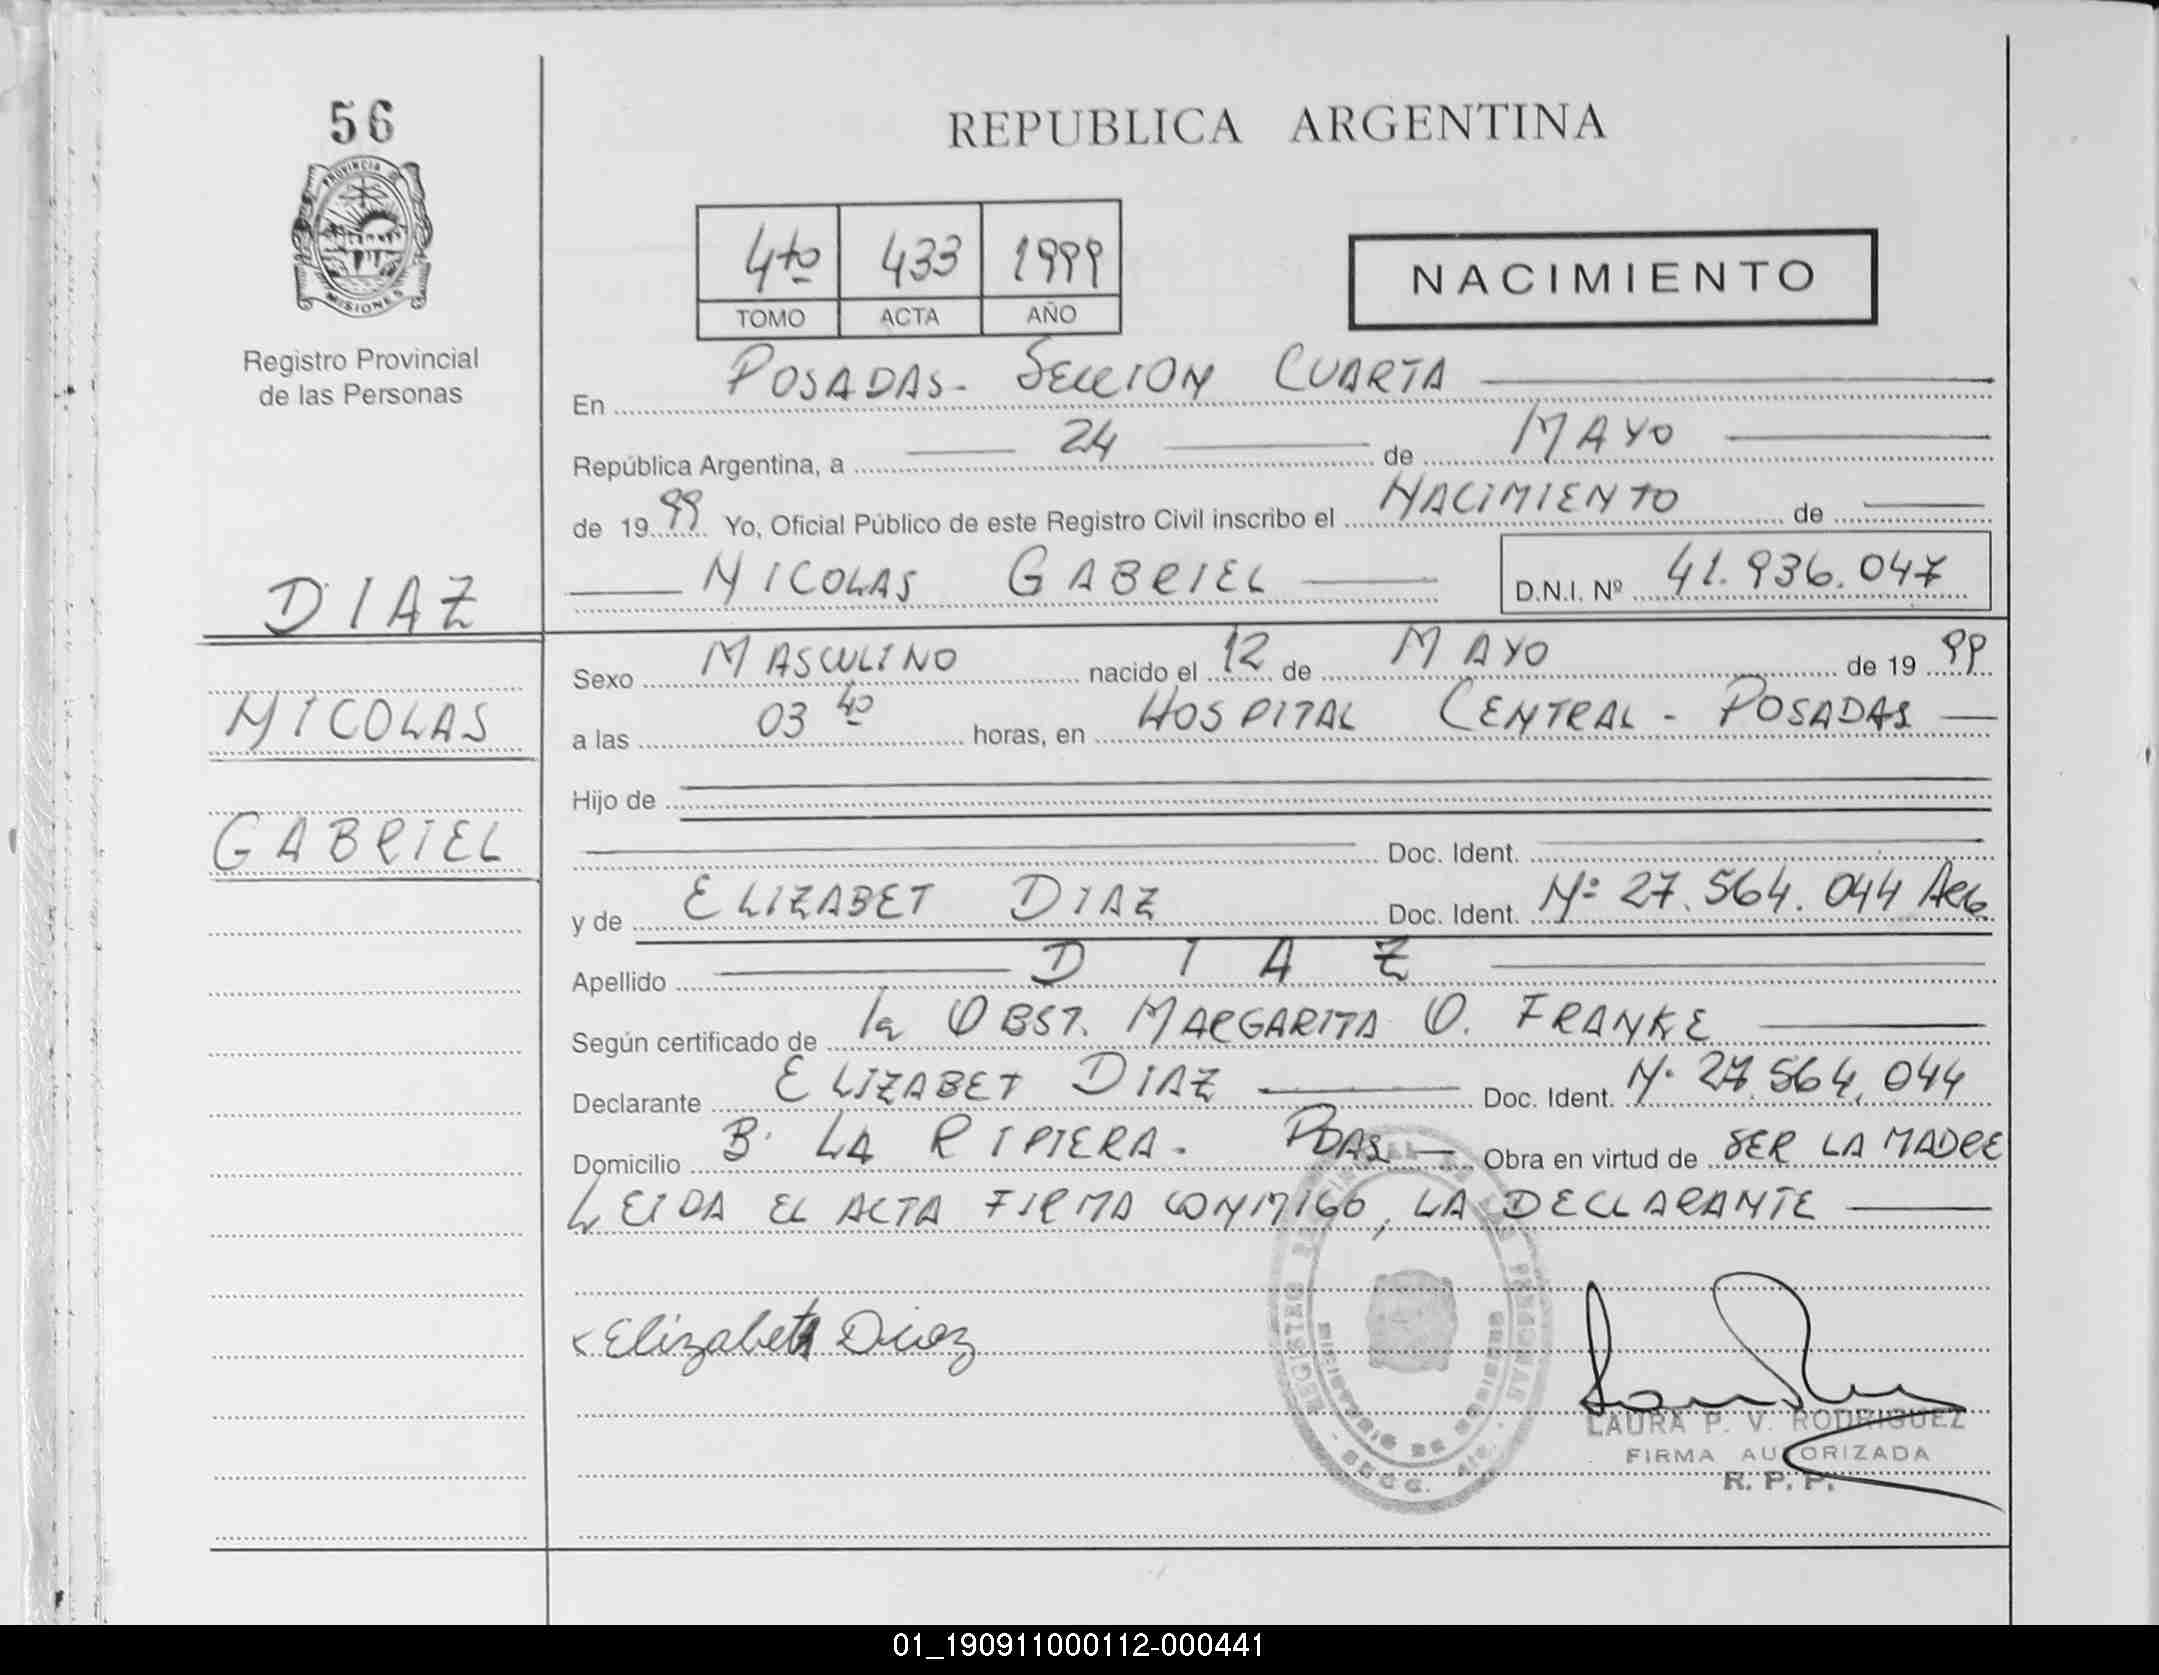 56
PROVINCIA DE
MISIONES
Registro Provincial
de las Personas
DIAZ
NICOLAS
GABRIEL
REPUBLICA ARGENTINA
4to 433 1999
TOMO ACTA AÑO
NACIMIENTO
En POSADAS- SECCION CUARTA
República Argentina, a 24 de MAYO
de 1999 Yo, Oficial Público de este Registro Civil inscribo el NACIMIENTO de
NICOLAS GABRIEL D.N.I. Nº 41.936.047
Sexo MASCULINO nacido el 12 de MAYO de 1999
a las 03 40 horas, en HOSPITAL CENTRAL - POSADAS
Hijo de
Doc. Ident.
y de ELIZABET DIAZ Doc. Ident. Nº 27.564.044 ARG
Apellido DIAZ
Según certificado de la OBST. MARGARITA O. FRANKE
Declarante ELIZABET DIAZ Doc. Ident. N· 27.564.044
Domicilio B· LA RIPIERA- PDAS Obra en virtud de SER LA MADRE
LEIDA EL ACTA FIRMA CONMIGO, LA DECLARANTE
Elizabeth Diaz
REGISTRO PROVINCIAL DE LAS PERSONAS
MINISTERIO DE GOBIERNO
LAURA P. V. RODRIGUEZ
FIRMA AUTORIZADA
R. P. P.
01_190911000112-000441